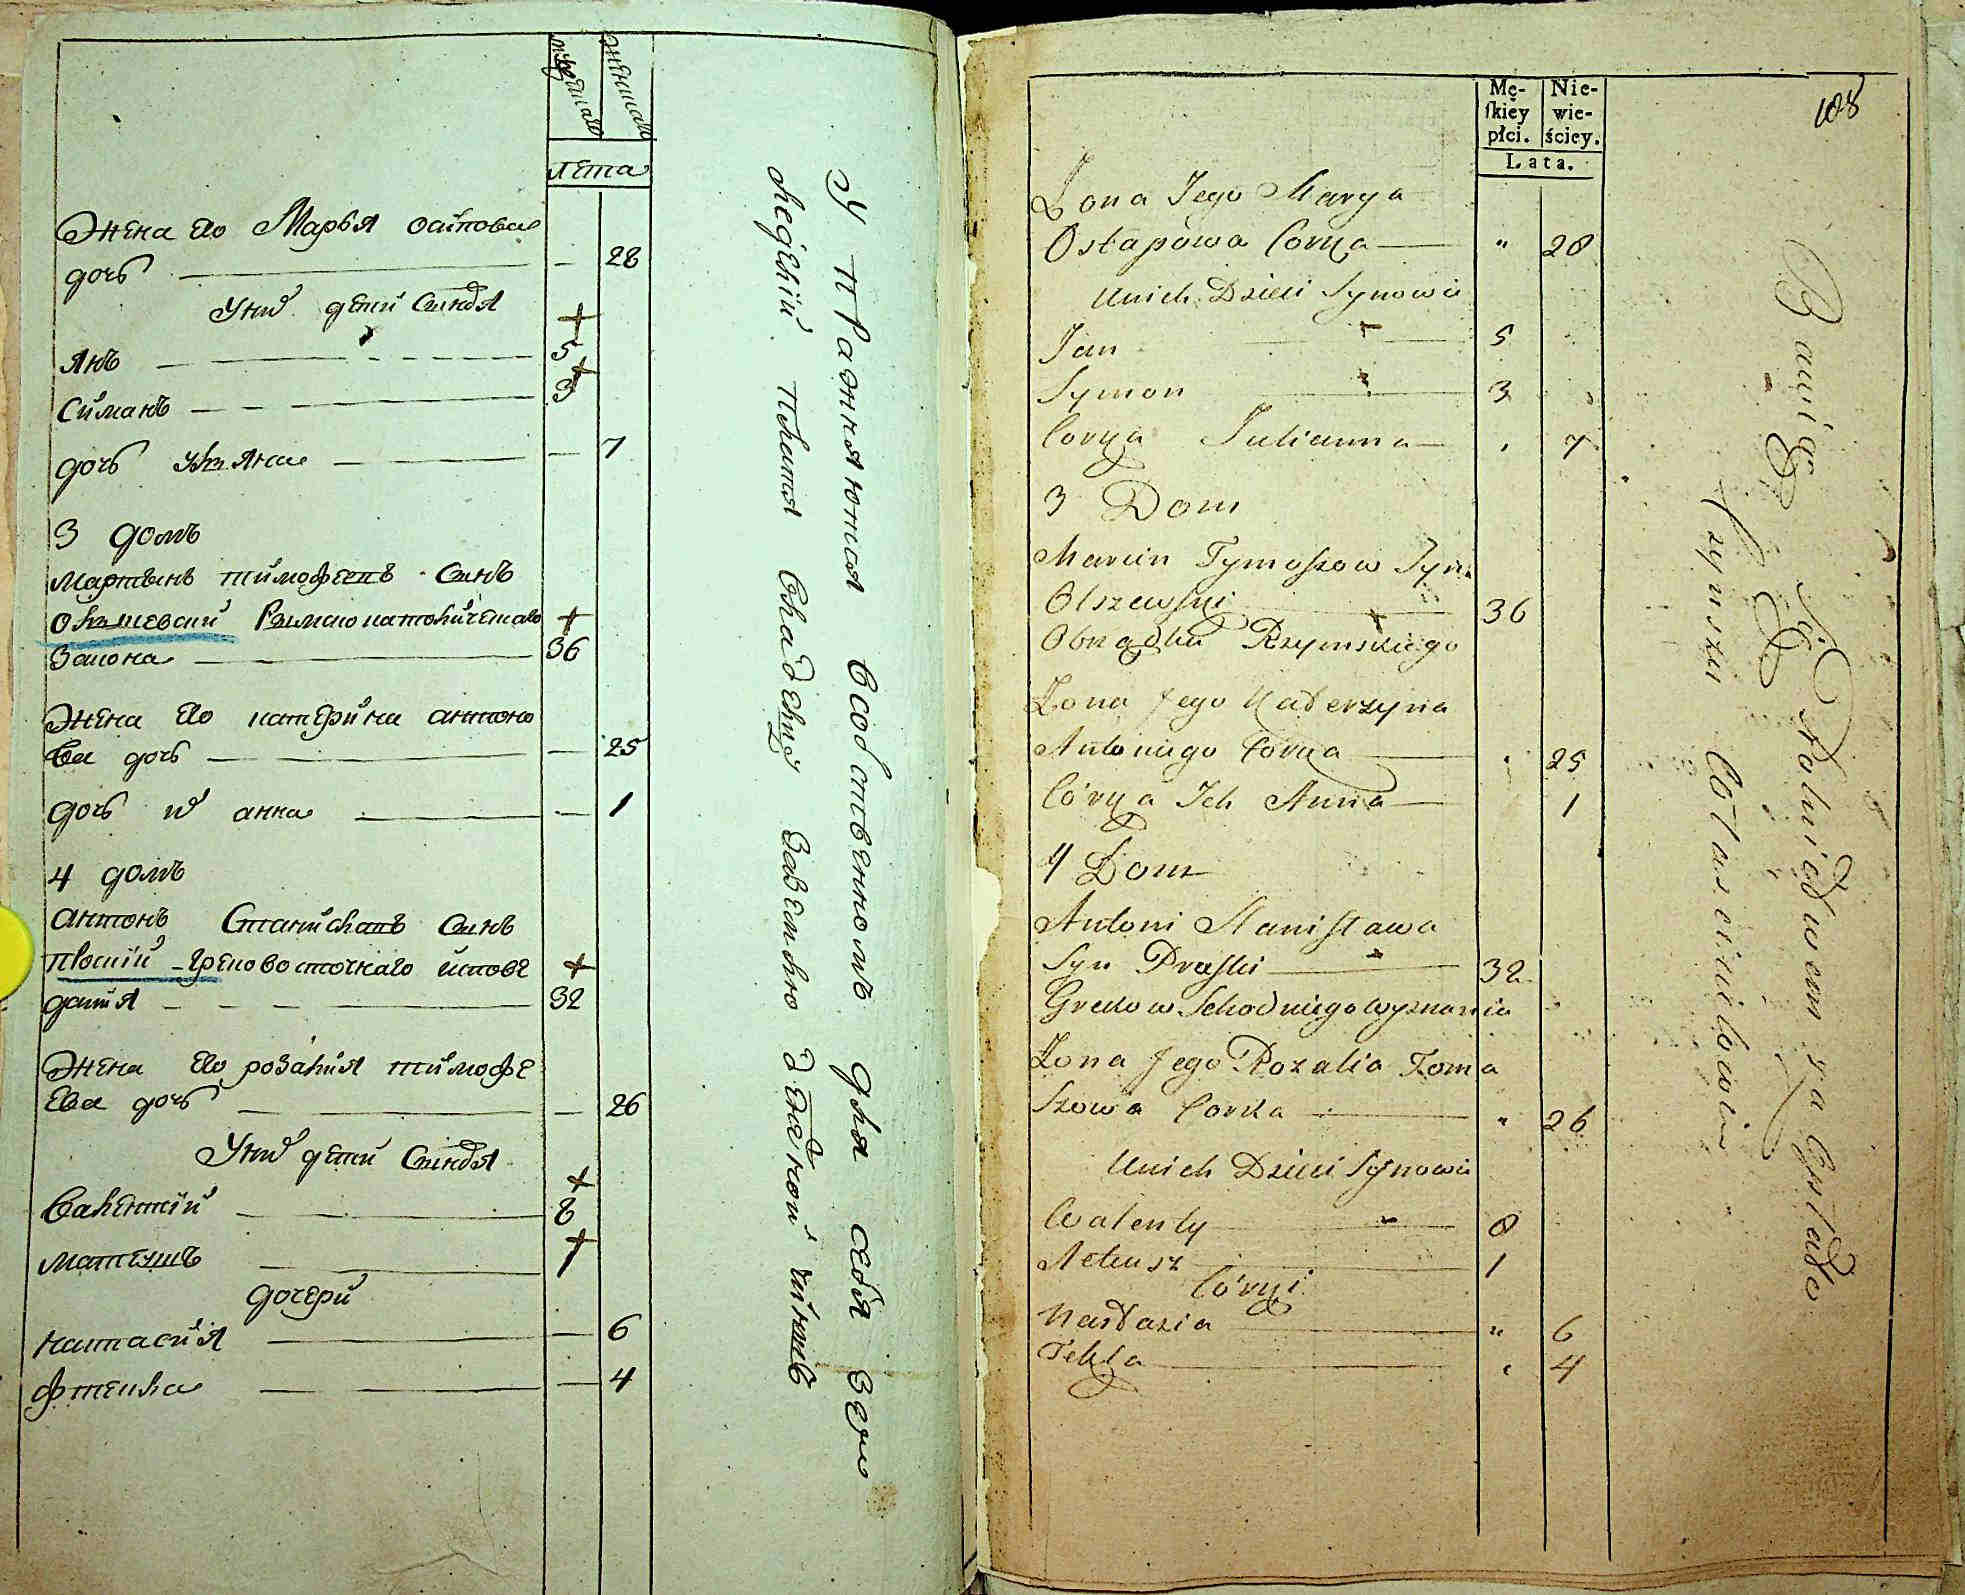 мужеска
женска
лета
Жена его Марья осипова
дочь 28
У них дети Сыновья
Янъ 5
Симанъ 3
дочь ульяна 7
3 домъ
Мартынъ тимофеевъ Сынъ
Ольшевский Римскокатолического
Закона 36
Жена его катерина антоно
ва дочь 25
дочь их анна 1
4 домъ
антонъ Станиславъ Сынъ
Праский Грековосточнаго испове
дания 32
Жена его розалия тимофе
ева дочь 26
У них дети Сыновья
Валентий 8
матеушъ 1
дочери
настасия 6
фтекла 4
Упражняются в собственномъ для себя
платя Владельцу денежной чиншъ
108
Mę-
skiey
płci.
Nie-
wie-
ściey.
Lata.
Zona Jego Marya
Ostapowa Corka " 28
Unich Dzieci Synowie
Jan 5
Symon 3
Corka Julianna 7
3 Dom
Marcin Tymoszow Syn
Olszewski 36
Obrządku Rzymskiego
Zona Jego Katerzyna
Antoniego Corka 25
Córka Ich Anna 1
4 Dom
Antoni Stanisława
Syn Praski 32
Greckow Schodniego wyznania
Zona Jego Rozalia Toma
szowa Corka " 26
Unich Dzieci Synowie
Walenty 8
Mateusz 1
Córki
Nastazia " 6
Tekla 4
Bawią Się Rolnictwem za Opłatą
Czynszu Właścicielowi